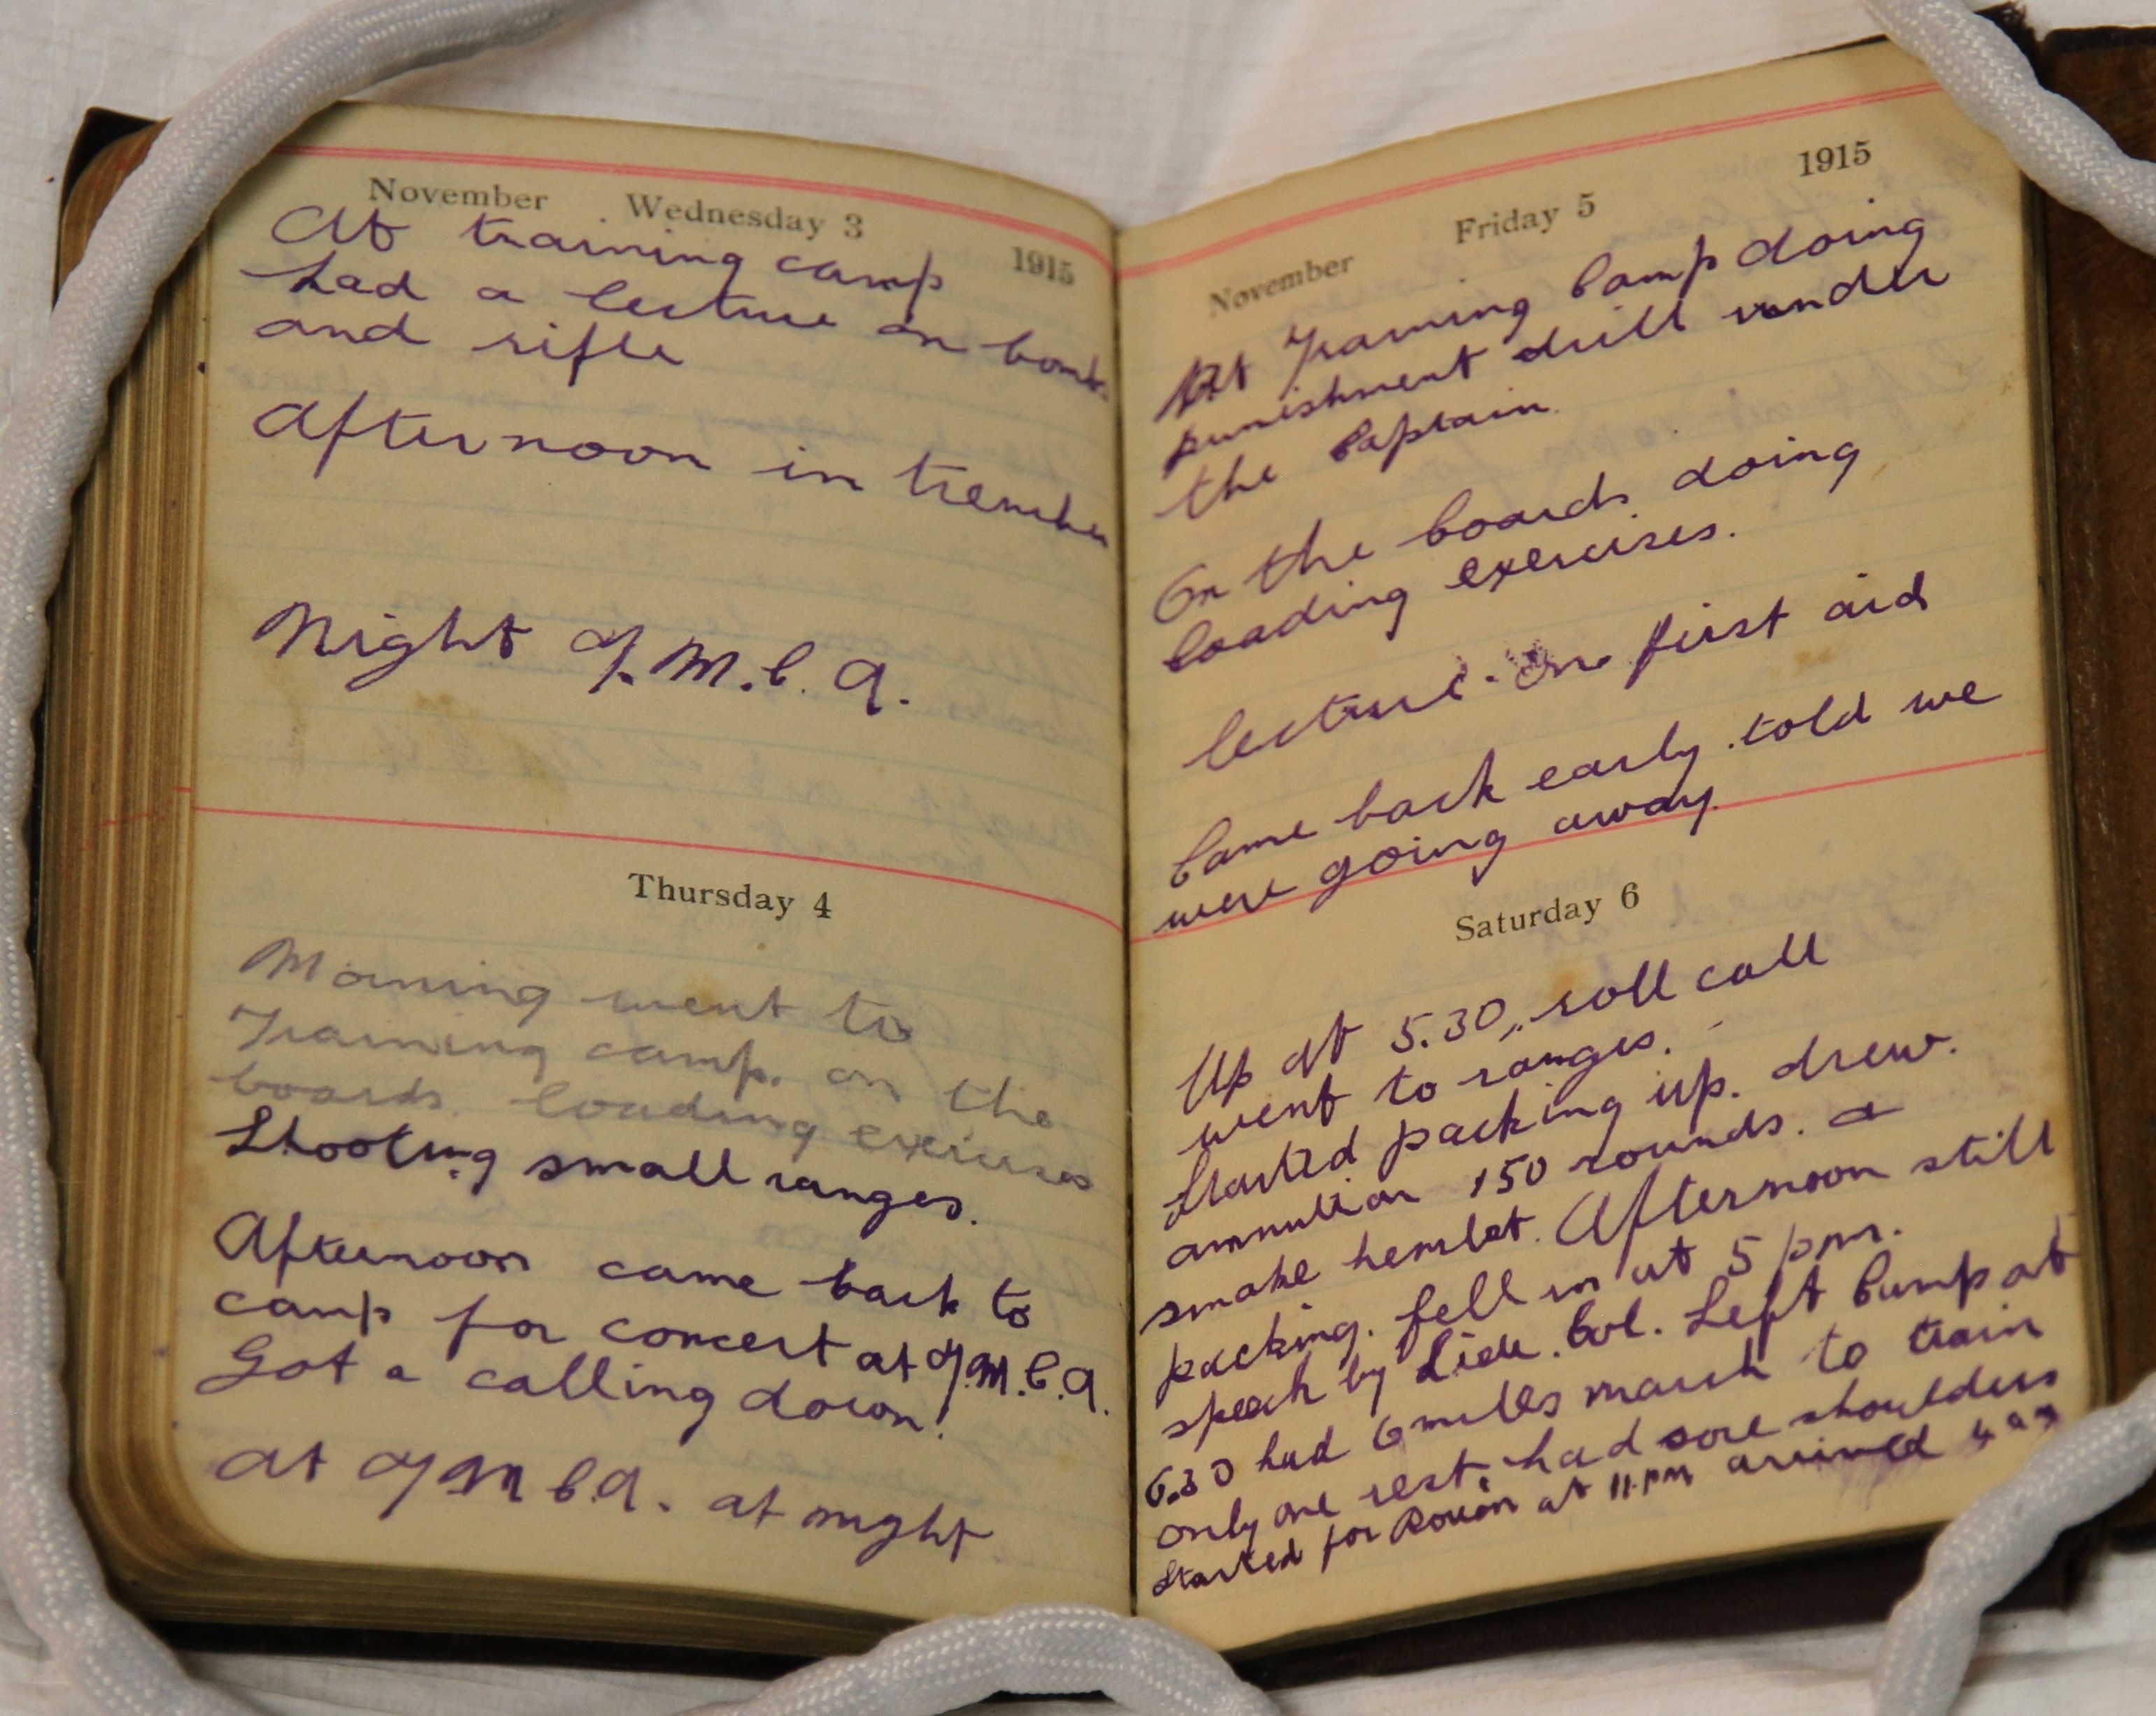 November Wednesday 3
1915
At training camp
had a lecture on bombs
and rifle
Afternoon in trenches
Night Y.M.C.A.
Thursday 4
Morning went to
Training camp. on the
boards. loading exercises
Shooting small ranges.
Afternoon came back to
camp for concert at Y.M.C.A.
Got a calling down!
at Y M C.A. at night
1915
November Friday 5
At Training Camp doing
punishment drill under
the Captain.
On the boards doing
loading exercises.
lecture. on first aid
Came back early. told we
were going away.
Saturday 6
Up at 5.30, roll call
went to ranges.
Started packing up. drew.
ammution 150 rounds. a
smoke hemlet. Afternoon still
packing. fell in at 5 pm.
speech by Lieu. Col. Left Camp at
6.30 had 6 miles march to train
only one rest. had sore shoulders
Started for Rouen at 11.pm arrived